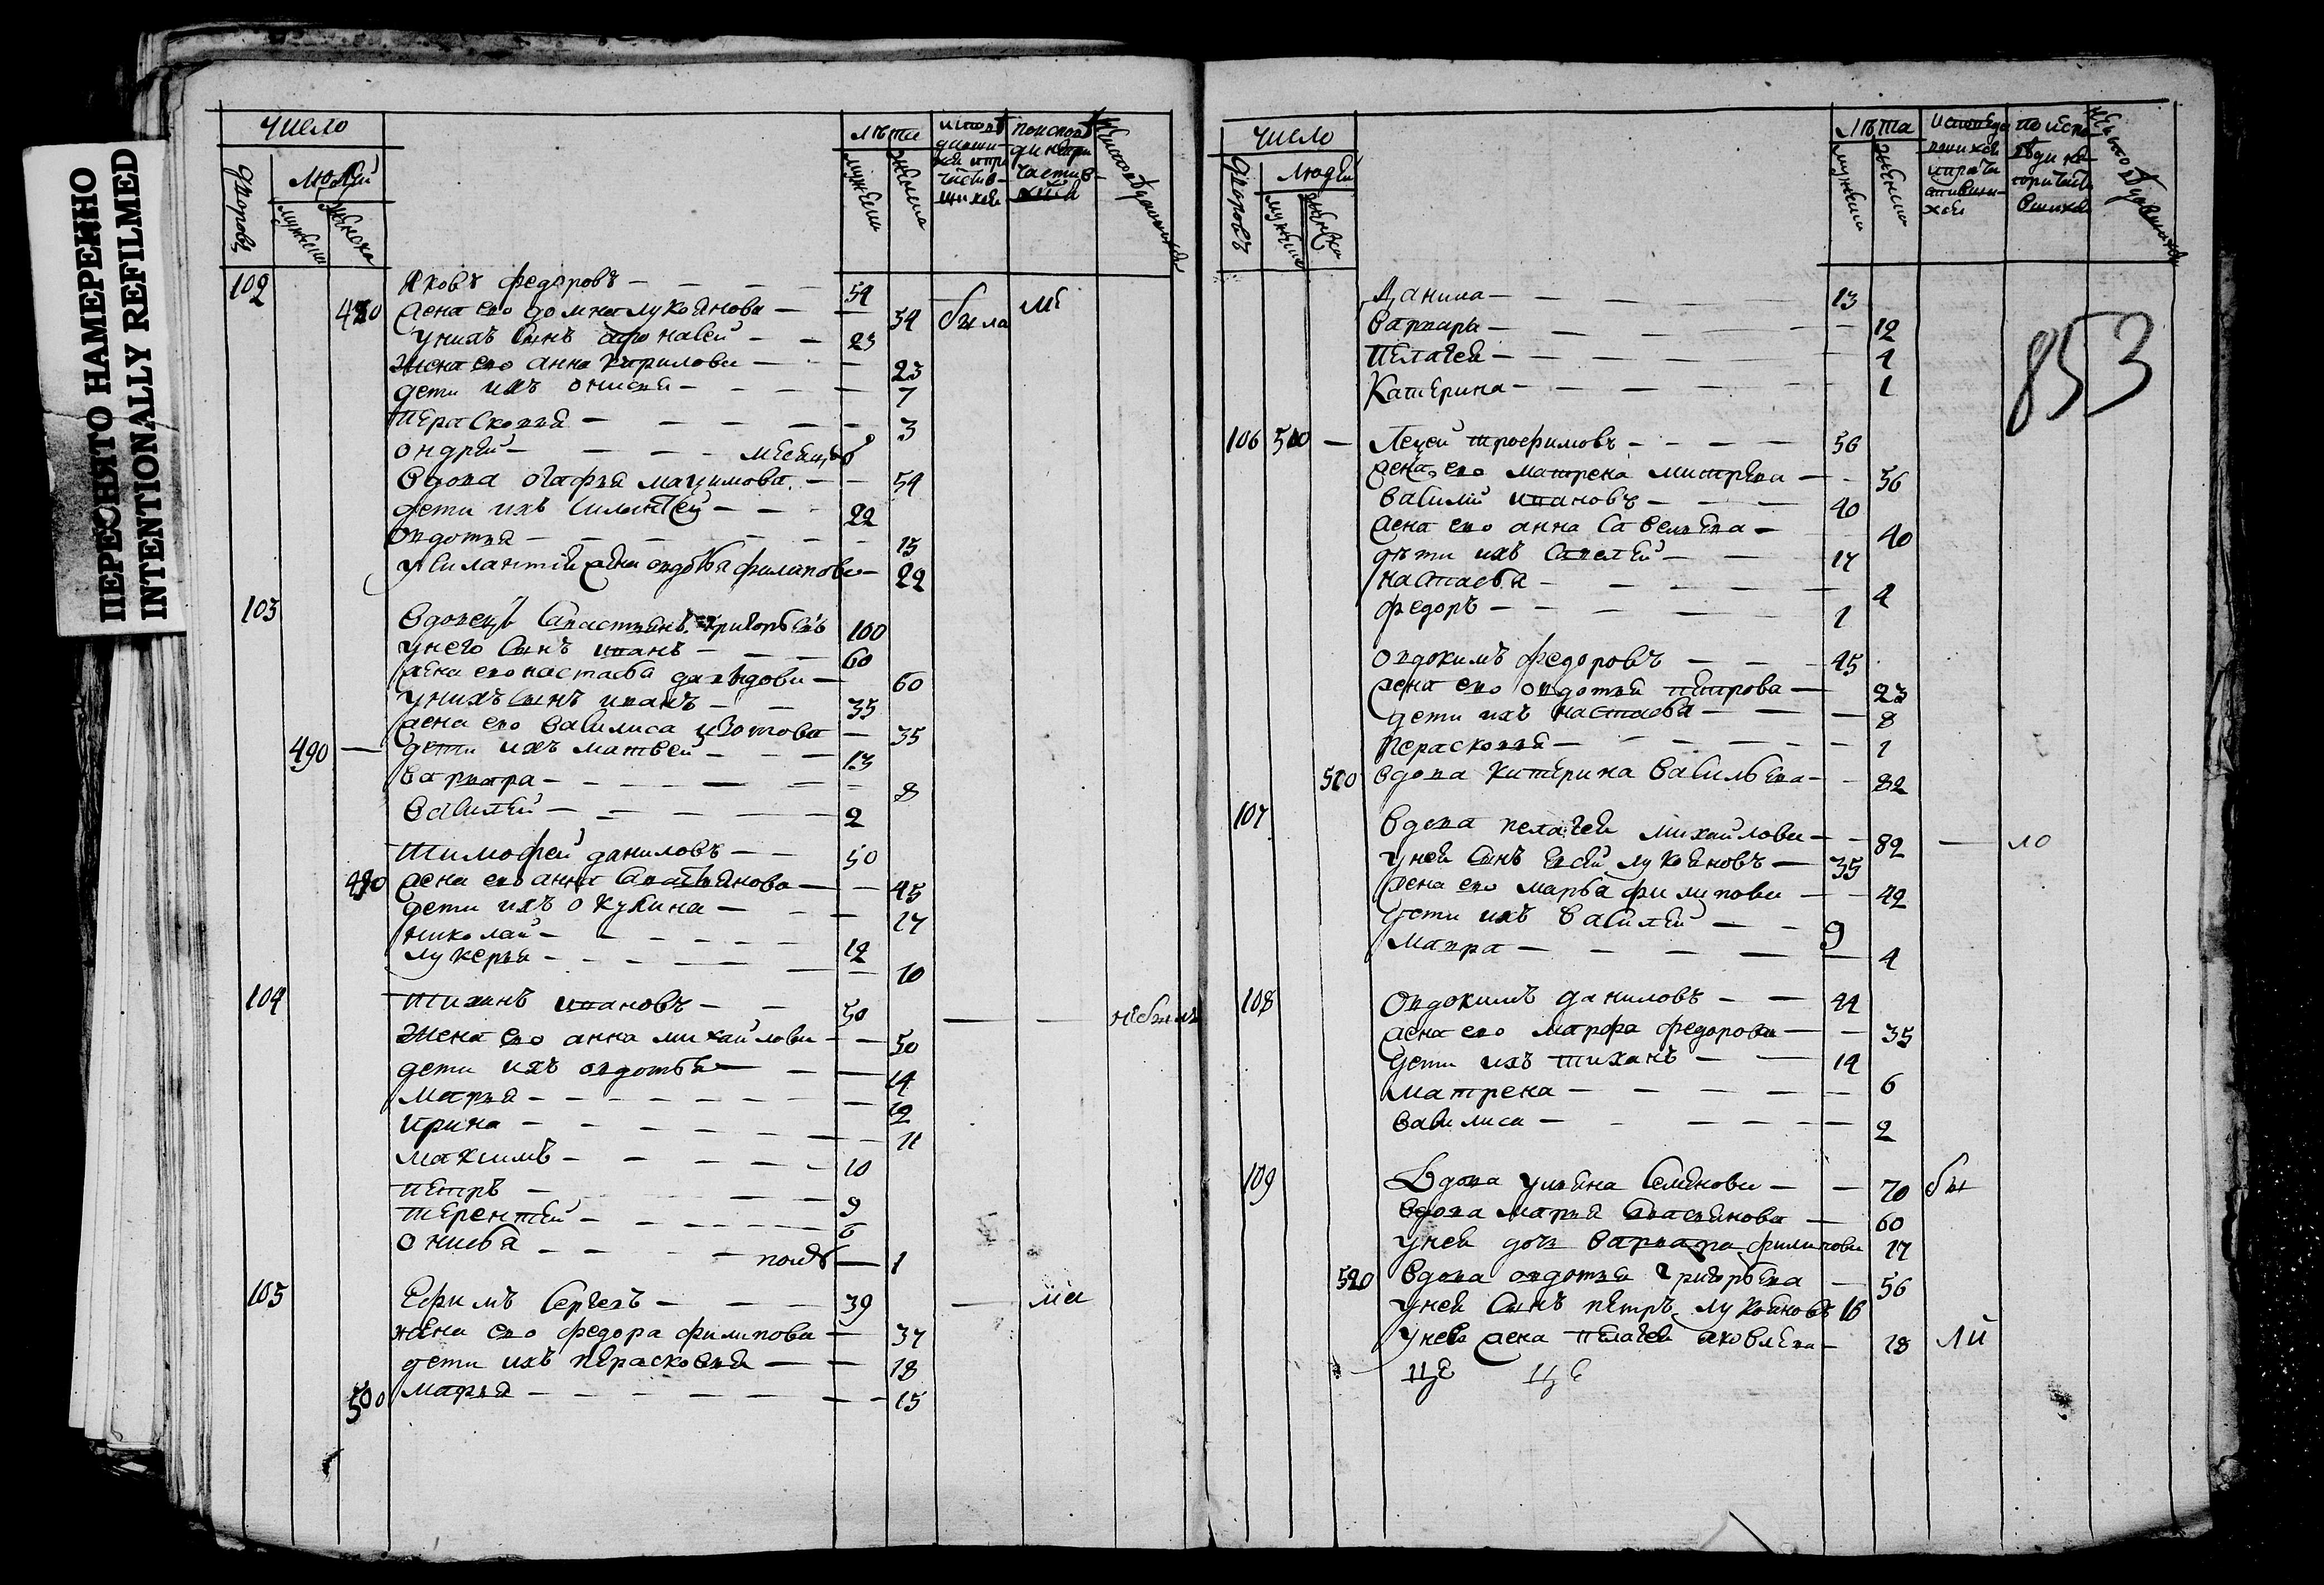 ПЕРЕСНЯТО НАМЕРЕННО
INTENTIONALLY REFILMED
число
дворовъ
людей
мужеска
женска
лѣта
мужеска
женска
102 Яковъ федоровъ — 54
480 жена ево домна лукоянова — 54 была
унихъ сынъ афонасей — 23
жена ево анна кирилова — 23
дети ихъ онисья — 7
Пераскопья — 3
ондрей — месецовъ 6
вдова огафья мацимова — 54
дети ихъ силантей — 22
овдотья — 15
у силантия жена овдотья филипова — 22
103 вдовецъ Савастьянъ григорьевъ 100
унего сынъ иванъ — 60
жена ево настасья давыдова — 60
унихъ сынъ иванъ — 35
жена ево василиса изотова — 35
490 — дети ихъ матвей — 13
варвара — 8
василей — 2
Тимофей даниловъ — 50
490 жена ево анна Савастьянова — 45
дети ихъ окулина — 17
николай — 12
лукерья — 10
104 Тиханъ ивановъ — 50 — — небыли
жена ево анна михайлова — 50
дети ихъ овдотья — 14
марья — 12
ирина — 11
максимъ — 10
петръ — 9
терентей — 6
онисья — 1
105 Ефимъ Сергевъ — 39 — ма
жена ево федора филипова — 37
дети ихъ перасковья — 18
500 марья — 15
число
дворовъ
людей
мужеска
женска
лѣта
мужеска
женска
853
Данила — 13
варвара — 12
Пелагея — 4
Катерина — 1
106 500 — трофимовъ — 56
жена ево матрена митрева — 56
василий ивановъ — 40
жена ево анна савельева — 40
дѣти ихъ савелей — 17
настасья — 4
федоръ — 1
овдокимъ федоровъ — 45
жена ево овдотья петрова — 23
дети ихъ настасья — 8
пераскопья — 1
510 вдова катерина васильева — 82
107 вдова пелагея михайлова — 82 — ло
уней сынъ лукояновъ — 35
жена ево марья филипова — 42
дети ихъ василей — 9
мавра — 4
108 овдокимъ даниловъ — 44
жена ево марфа федорова — 35
дети ихъ тиханъ — 14
матрена — 6
василиса — 2
109 вдова ульяна семенова — 70 бы
вдова марья савасьянова — 60
уней дочь варвара филипова 17
520 вдова овдотья григорьева — 56
уней сынъ петръ лукояновъ 16
унево жена пелагея яковлева — 18 ли